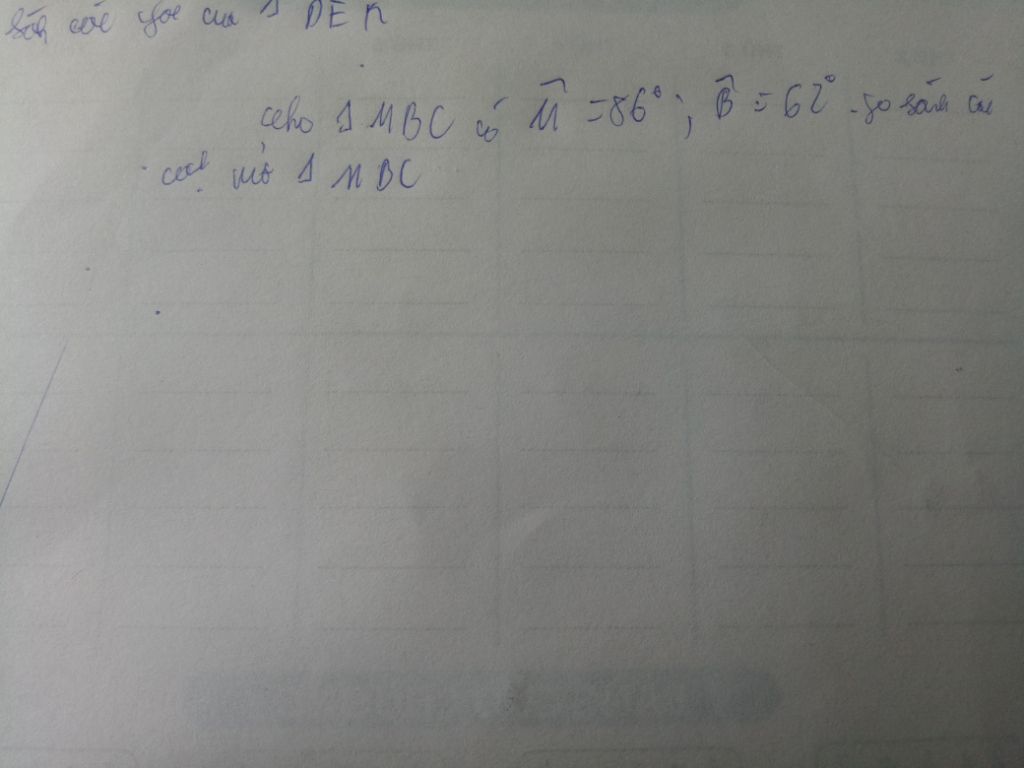 sánh các góc của Δ DEK
cho Δ MBC có M̂ = 86°; B̂ = 62°. so sánh các
cạnh của Δ MBC